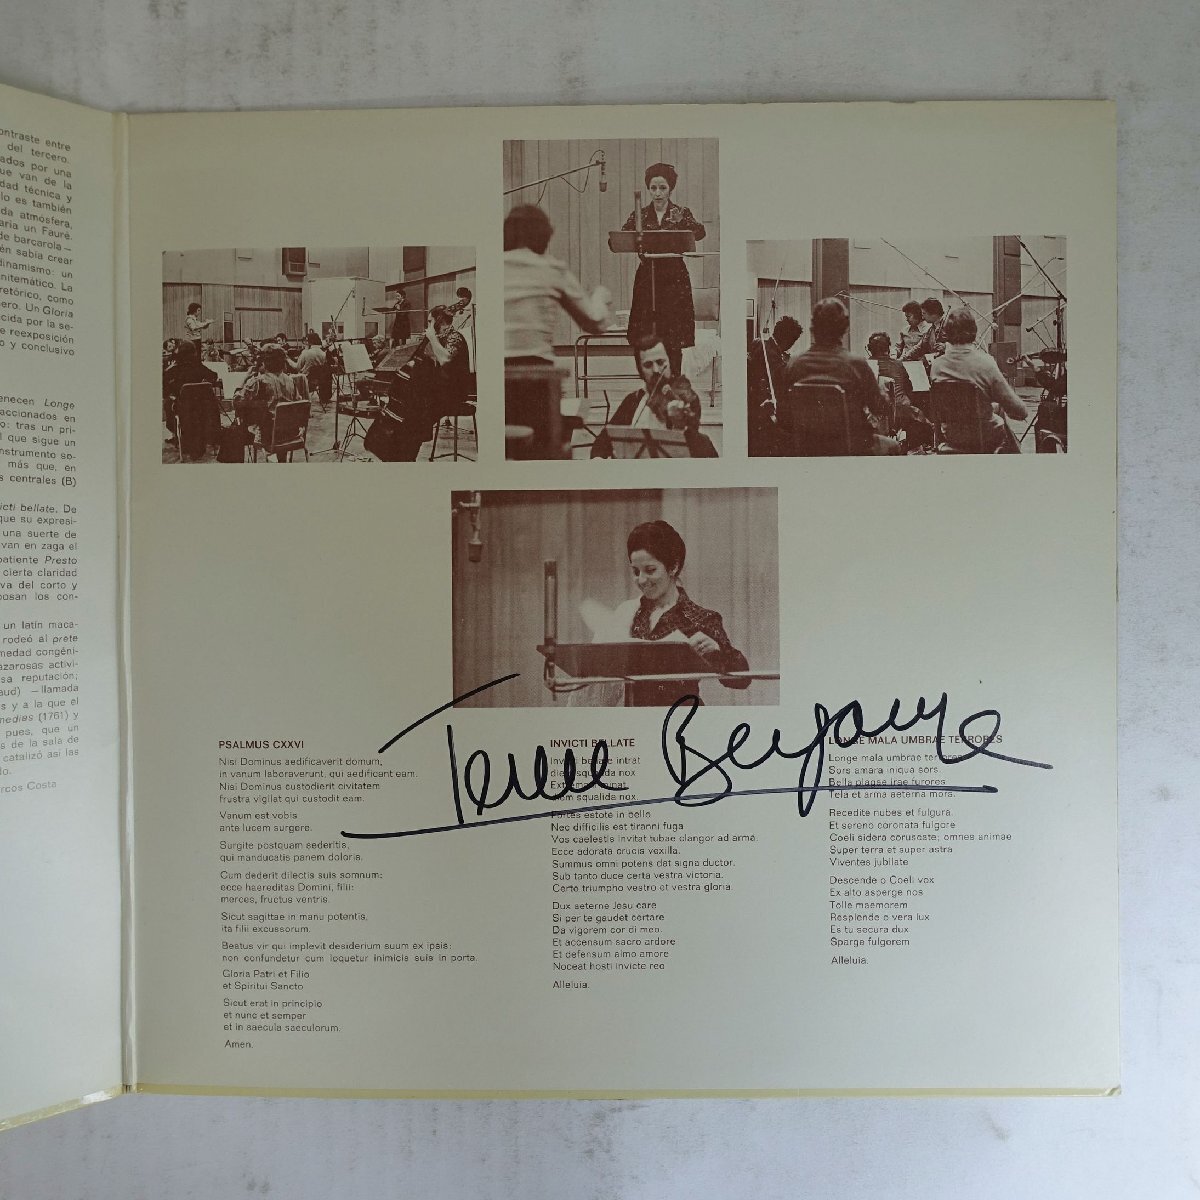 ontraste entre
del tercero.
ados por una
ue van de la
dad técnica y
lo es también
da atmosfera,
aría un Fauré.
de barcarola —
én sabía crear
dinamismo: un
nitemático. La
retórico, como
ero. Un Gloria
cida por la se-
e reexposición
o y conclusivo
enecen Longe
accionados en
o: tras un pri-
l que sigue un
nstrumento so-
más que, en
s centrales (B)
icti bellate. De
que su expresi-
una suerte de
van en zaga el
patiente Presto
cierta claridad
va del corto y
posan los con-
un latín maca-
rodeó al prete
medad congéni-
azarosas activi-
sa reputación;
aud) — llamada
s y a la que el
medias (1761) y
pues, que un
s de la sala de
catalizó así las
do.
rcos Costa
PSALMUS CXXVI
Nisi Dominus aedificaverit domum,
in vanum laboraverunt, qui aedificant eam.
Nisi Dominus custodierit civitatem
frustra vigilat qui custodit eam.
Vanum est vobis
ante lucem surgere.
Surgite postquam sederitis,
qui manducatis panem doloris.
Cum dederit dilectis suis somnum:
ecce haereditas Domini, filii:
merces, fructus ventris.
Sicut sagittae in manu potentis,
ita filii excussorum.
Beatus vir qui implevit desiderium suum ex ipsis:
non confundetur cum loquetur inimicis suis in porta.
Gloria Patri et Filio
et Spiritui Sancto
Sicut erat in principio
et nunc et semper
et in saecula saeculorum.
Amen.
INVICTI BELLATE
Invicti bellate intrat
squalida nox
squalida nox.
Fortes estote in bello
Nec difficilis est tiranni fuga
Vos caelestis invitat tubae clangor ad arma.
Ecce adorata crucis vexilla.
Summus omni potens dat signa ductor.
Sub tanto duce certa vestra victoria.
Certo triumpho vestro et vestra gloria.
Dux aeterne Jesu care
Si per te gaudet certare
Da vigorem cor di meo.
Et accensum sacro ardore
Et defensum almo amore
Noceat hosti invicte reo
Alleluia.
LONGE MALA UMBRAE TERRORES
Longe mala umbrae terrores
Sors amara iniqua sors.
Bella plagae irae furores
Tela et arma aeterna mors.
Recedite nubes et fulgura.
Et sereno coronata fulgore
Coeli sidera coruscate; omnes animae
Super terra et super astra
Viventes jubilate
Descende o Coeli vox
Ex alto asperge nos
Tolle maemorem
Resplende o vera lux
Es tu secura dux
Sparge fulgorem
Alleluia.
Teresa Berganza